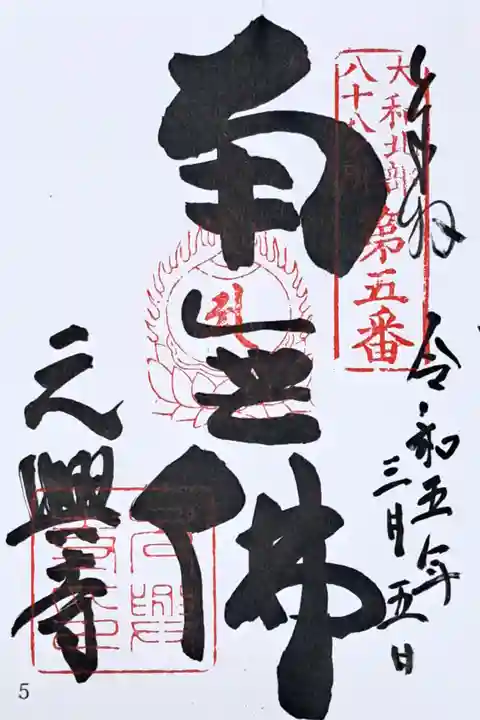 奉拝
令和五年
三月五日
大和北部
八十八ヶ所
第五番
南無仏
元興寺
元興寺印
5